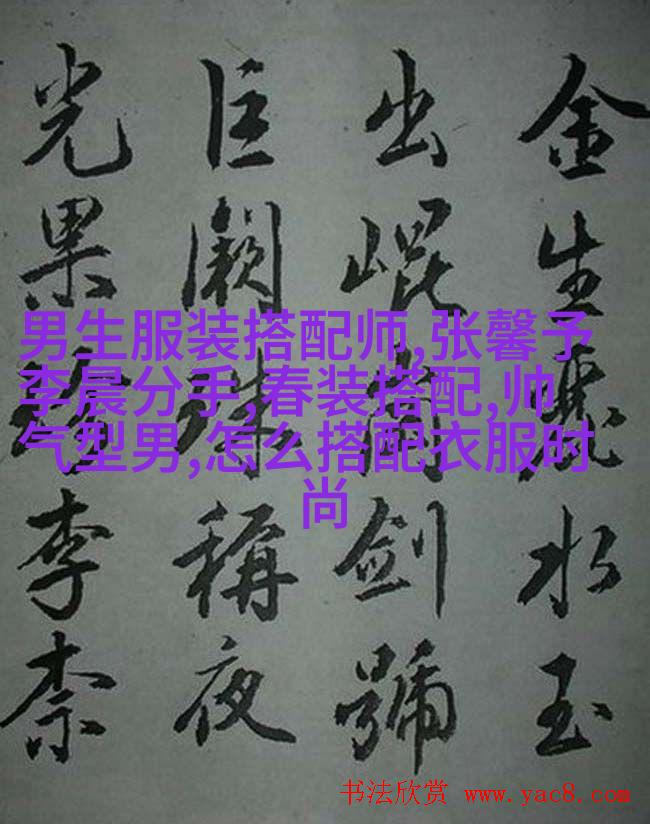 金生麗水玉
出崐岡劍號
巨闕珠稱夜
光果珍李柰
男生服装搭配师,张馨予
李晨分手,春装搭配,帅
气型男,怎么搭配衣服时
尚
书法欣赏 www.yac8.com